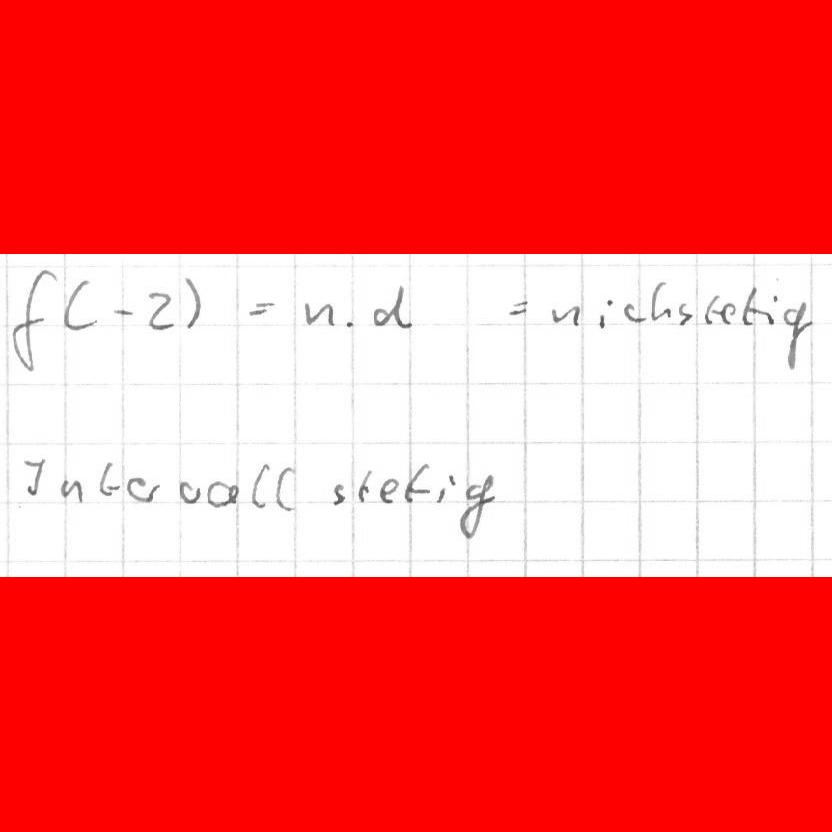 f(-2) = n.d = nichstetig
Intervall stetig